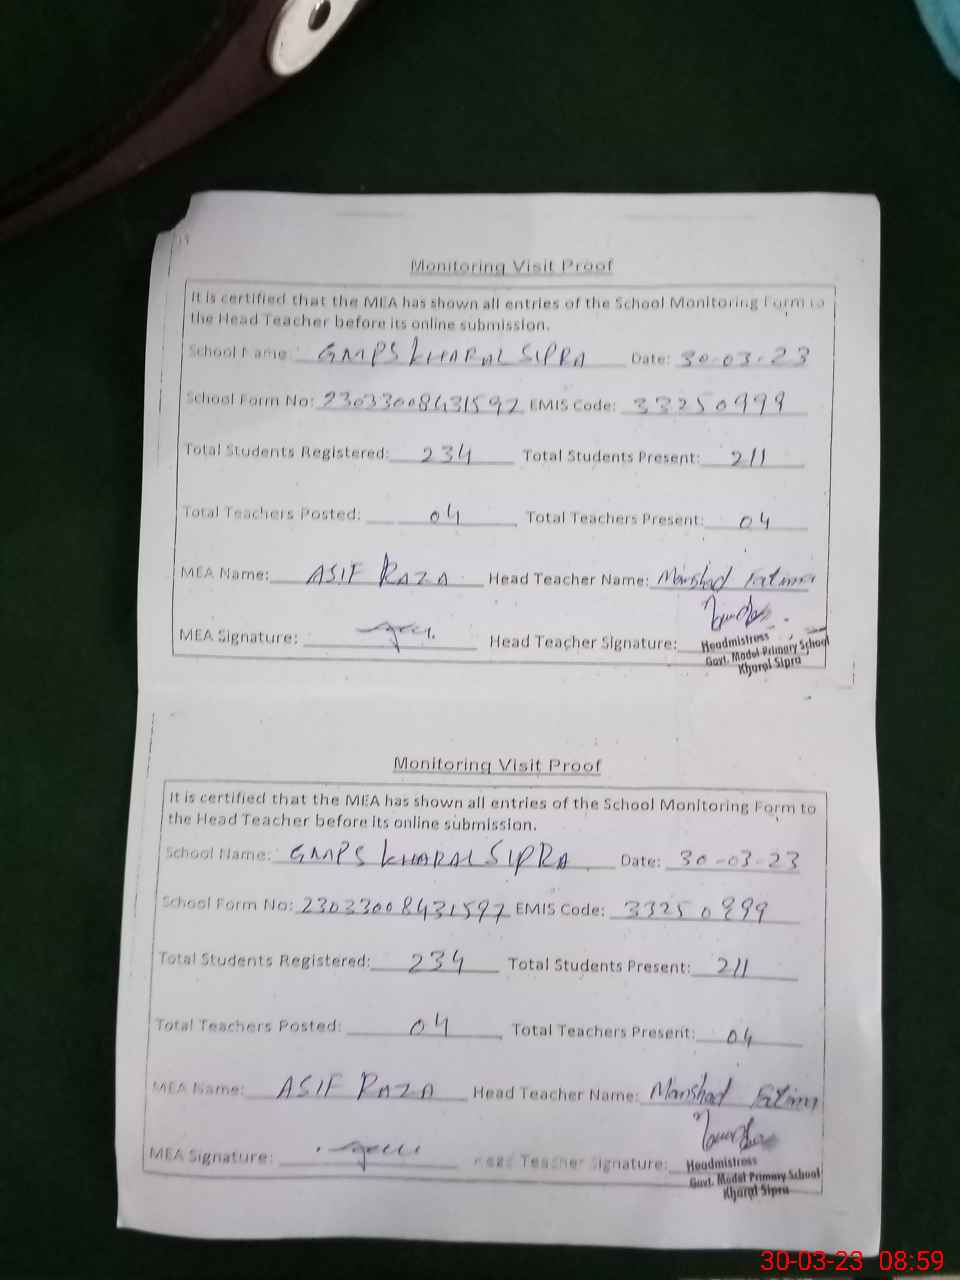 Monitoring Visit Proof
It is certified that the MEA has shown all entries of the School Monitoring Form to
the Head Teacher before its online submission.
School Name: GMPS KHARAL SIPRA Date: 30-03-23
School Form No: 23033008431597 EMIS Code: 33250999
Total Students Registered: 234 Total Students Present: 211
Total Teachers Posted: 04 Total Teachers Present: 04
MEA Name: ASIF RAZA Head Teacher Name: Fatima
MEA Signature: Head Teacher Signature:
Headmistress
Govt. Model Primary School
Kharal Sipra
Monitoring Visit Proof
It is certified that the MEA has shown all entries of the School Monitoring Form to
the Head Teacher before its online submission.
School Name: GMPS KHARAL SIPRA Date: 30-03-23
School Form No: 23033008431597 EMIS Code: 33250999
Total Students Registered: 234 Total Students Present: 211
Total Teachers Posted: 04 Total Teachers Present: 04
MEA Name: ASIF RAZA Head Teacher Name: Fatima
MEA Signature: Head Teacher Signature:
Headmistress
Govt. Model Primary School
Kharal Sipra
30-03-23 08:59